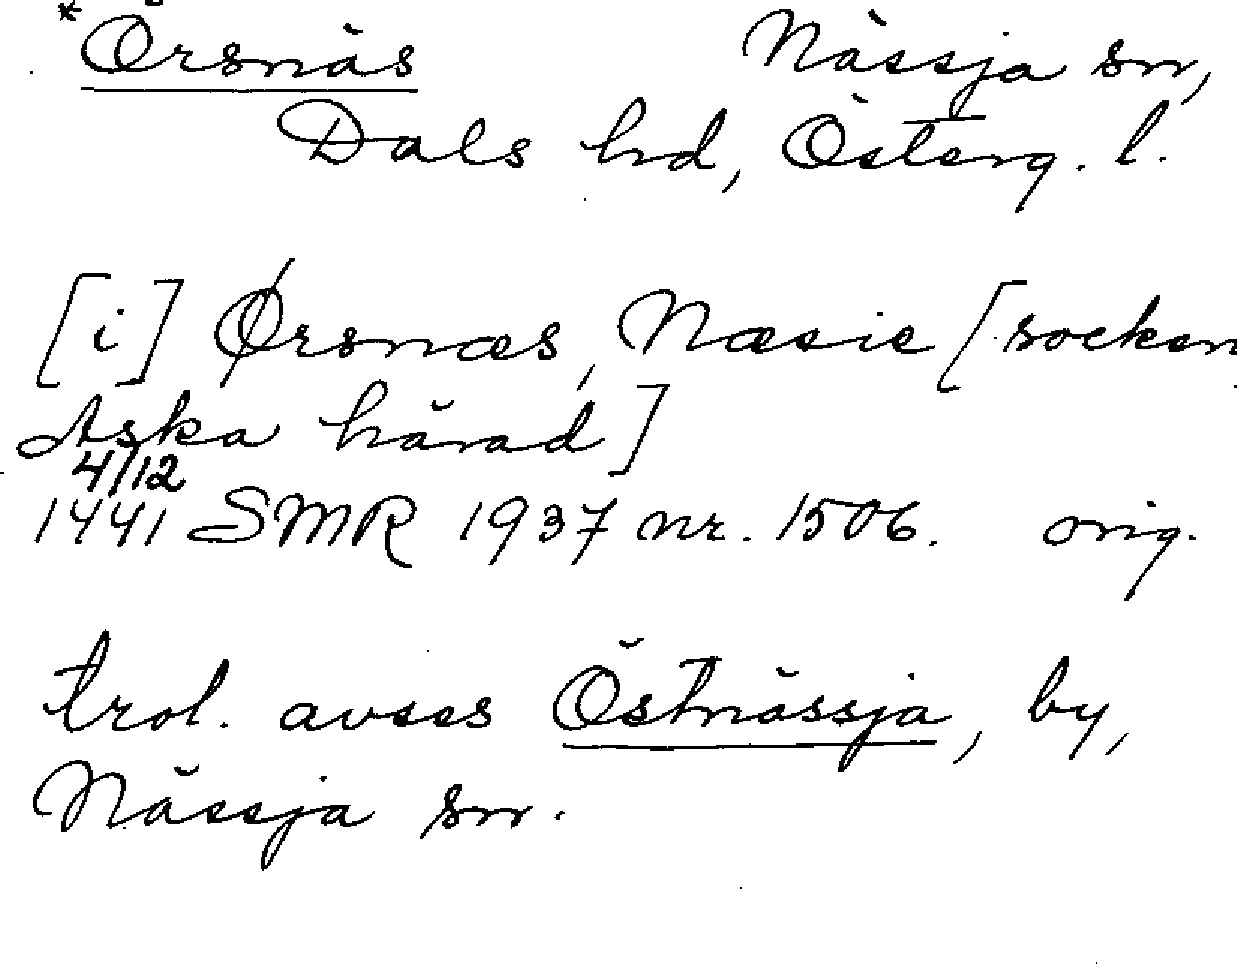 *Örsnäs Nässja sn,
Dals hd, Österg. l.
[i] Ørsnæs, Næsie [socken
Aska härad]
4/12
1441 SMR 1937 nr. 1506. orig.
trol. avses Östnässja, by,
Nässja sn.